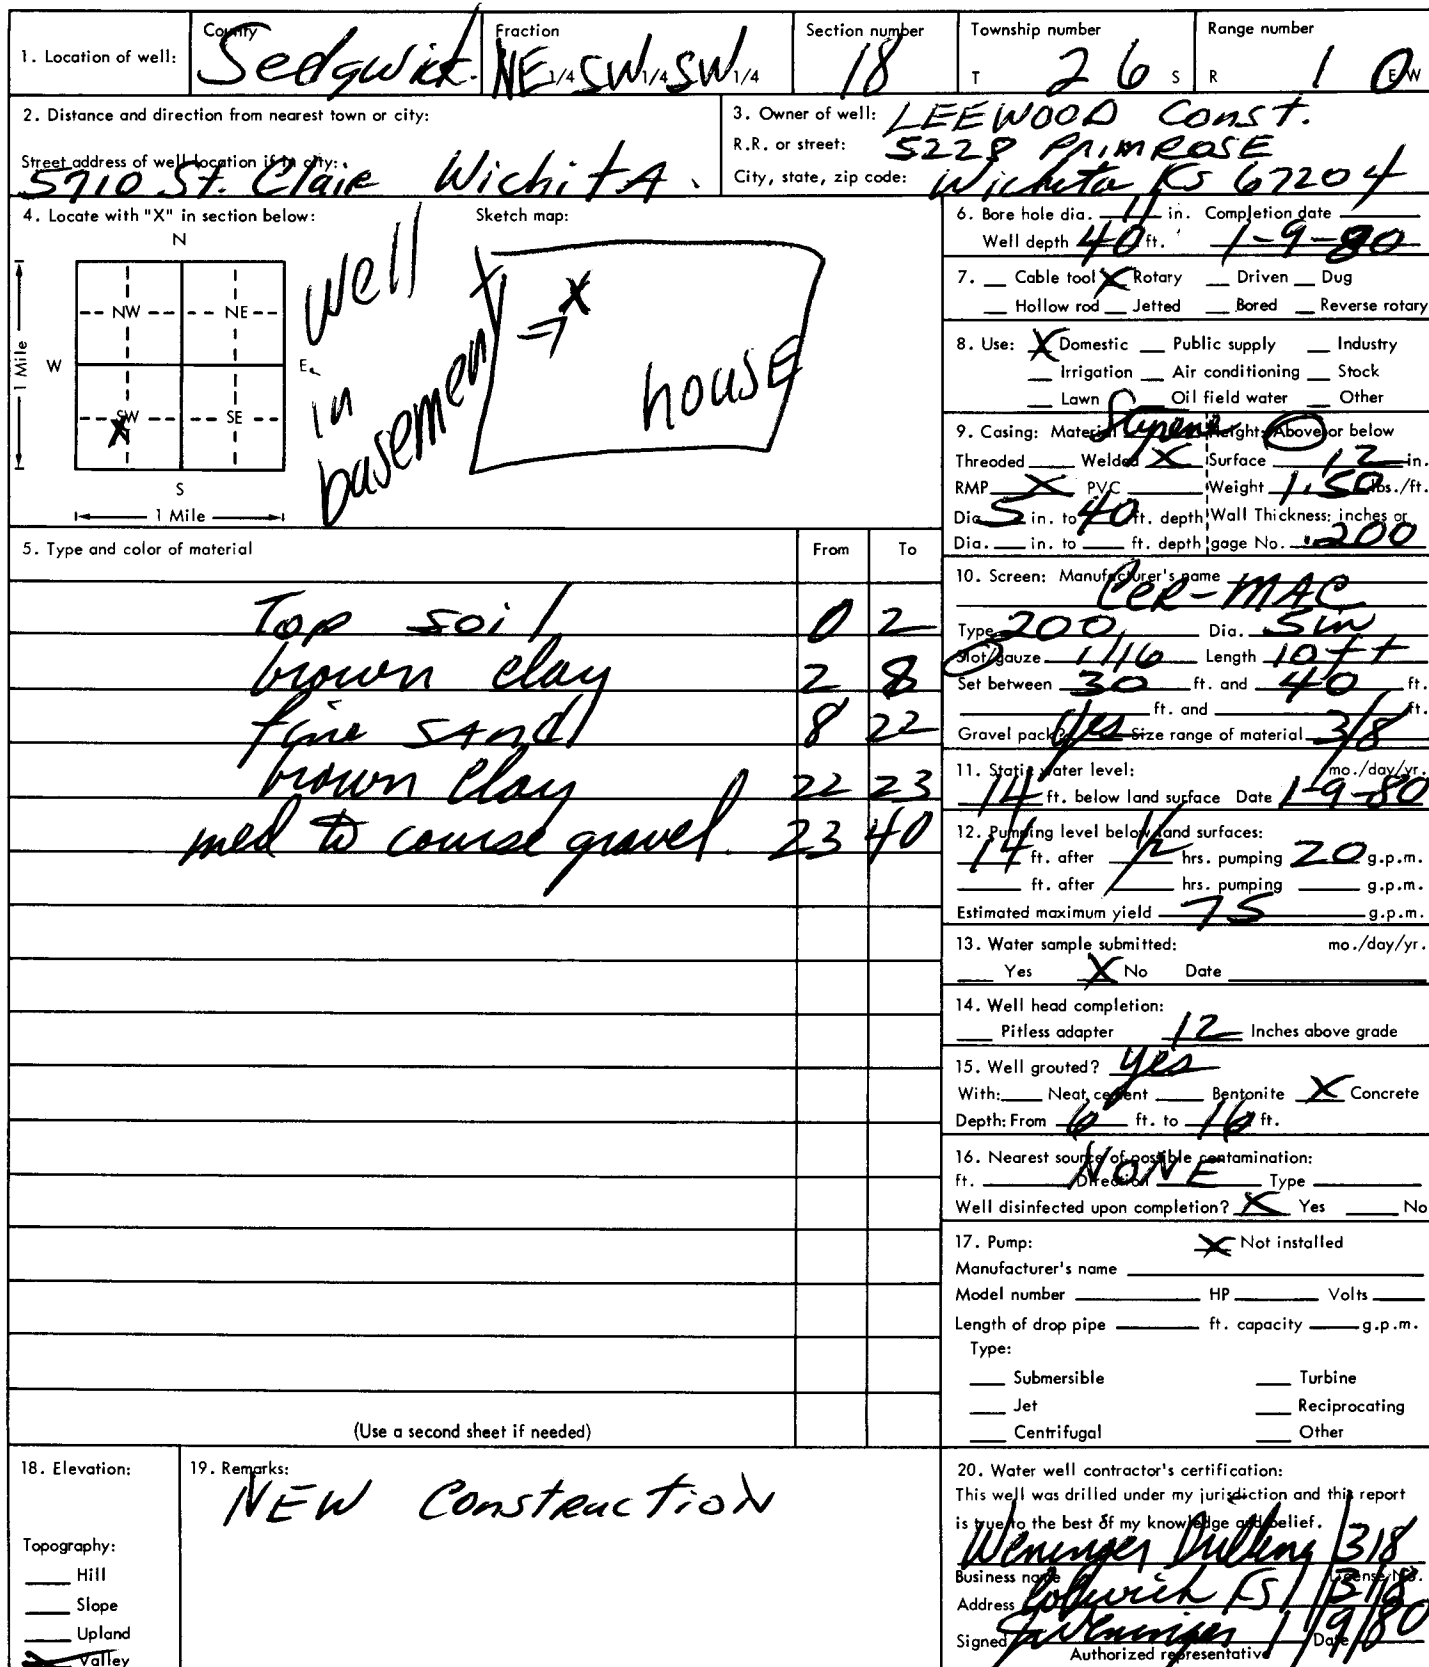 1. Location of well: County Sedgwick. Fraction NE 1/4 SW 1/4 SW 1/4 Section number 18 Township number T 26 S Range number R 1 E W
2. Distance and direction from nearest town or city:
Street address of well location if in city:
5710 St. Claire Wichita.
3. Owner of well: LEEWOOD Const.
R.R. or street: 5228 PRIMROSE
City, state, zip code: Wichita KS 67204
4. Locate with "X" in section below: Sketch map:
N
NW NE
W E
SW SE
X
S
1 Mile
1 Mile
well
in
basement
X
house
5. Type and color of material From To
Top soil 0 2
brown clay 2 8
fine sand 8 22
brown clay 22 23
med to course gravel. 23 40
(Use a second sheet if needed)
6. Bore hole dia. 11 in. Completion date
Well depth 40 ft. 1-9-80
7. Cable tool X Rotary Driven Dug
Hollow rod Jetted Bored Reverse rotary
8. Use: X Domestic Public supply Industry
Irrigation Air conditioning Stock
Lawn Oil field water Other
9. Casing: Material Styrene Height: Above or below
Threaded Welded X Surface 12 in.
RMP X PVC Weight 1.50 lbs./ft.
Dia. 5 in. to 40 ft. depth Wall Thickness: inches or
Dia. in. to ft. depth gage No. .200
10. Screen: Manufacturer's name
Cer-MAC
Type 200 Dia. 5in
Slot/gauze 1/16 Length 10 ft
Set between 30 ft. and 40 ft.
ft. and ft.
Gravel pack? yes Size range of material 3/8
11. Static water level: mo./day/yr.
14 ft. below land surface Date 1-9-80
12. Pumping level below land surfaces:
14 ft. after 1/2 hrs. pumping 20 g.p.m.
ft. after hrs. pumping g.p.m.
Estimated maximum yield 75 g.p.m.
13. Water sample submitted: mo./day/yr.
Yes X No Date
14. Well head completion:
Pitless adapter 12 Inches above grade
15. Well grouted? yes
With: Neat cement Bentonite X Concrete
Depth: From 6 ft. to 16 ft.
16. Nearest source of possible contamination:
ft. NONE Direction Type
Well disinfected upon completion? X Yes No
17. Pump: X Not installed
Manufacturer's name
Model number HP Volts
Length of drop pipe ft. capacity g.p.m.
Type:
Submersible Turbine
Jet Reciprocating
Centrifugal Other
18. Elevation:
Topography:
Hill
Slope
Upland
X Valley
19. Remarks:
NEW Construction
20. Water well contractor's certification:
This well was drilled under my jurisdiction and this report
is true to the best of my knowledge and belief.
Weninger Drilling 318
Business name License No.
Address Colwich KS 318
Signed Weninger Date 1/9/80
Authorized representative